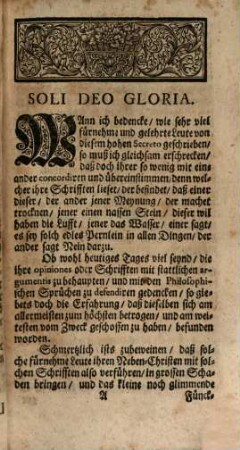 SOLI DEO GLORIA.
WAnn ich bedencke/ wie sehr viel
fürnehme und gelehrte Leute von
diesem hohen Secreto geschrieben/
so muß ich gleichsam erschrecken/
daß doch ihrer so wenig mit ein-
ander concordiren und übereinstimmen denn wel-
cher ihre Schrifften lieset/ der befindet/ daß einer
dieser/ der ander jener Meynung/ der machet
trocknen/ jener einen nassen Stein/ dieser wil
haben die Lufft/ jener das Wasser/ einer sagt/
es sey solch edles Perlein in allen Dingen/ der
ander sagt Nein darzu.
Ob wohl heutiges Tages viel seynd/ die
ihre opiniones oder Schrifften mit stattlichen ar-
gumentis zu behaupten/ und mit den Philosophi-
schen Sprüchen zu defendiren gedencken/ so gie-
bets doch die Erfahrung/ daß dieselben sich am
allermeisten zum höchsten betrogen/ und am wei-
testen vom Zweck geschossen zu haben/ befunden
worden.
Schmertzlich ists zubeweinen/ daß sol-
che fürnehme Leute ihren Neben-Christen mit sol-
chen Schrifften also verführen/ in grossen Scha-
den bringen/ und das kleine noch glimmende
A Fünck-